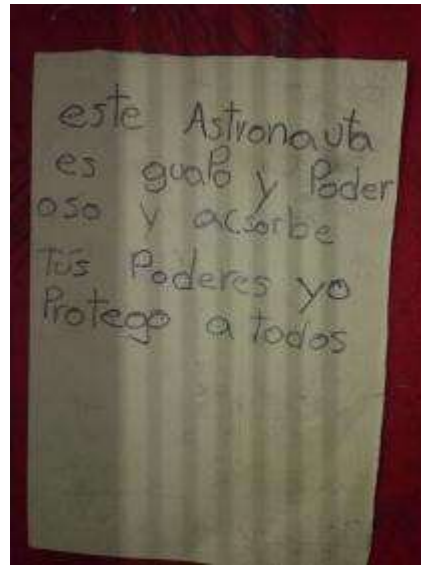 este Astronauta
es guapo y Poder
oso y acsorbe
Tus Poderes yo
Protego a todos